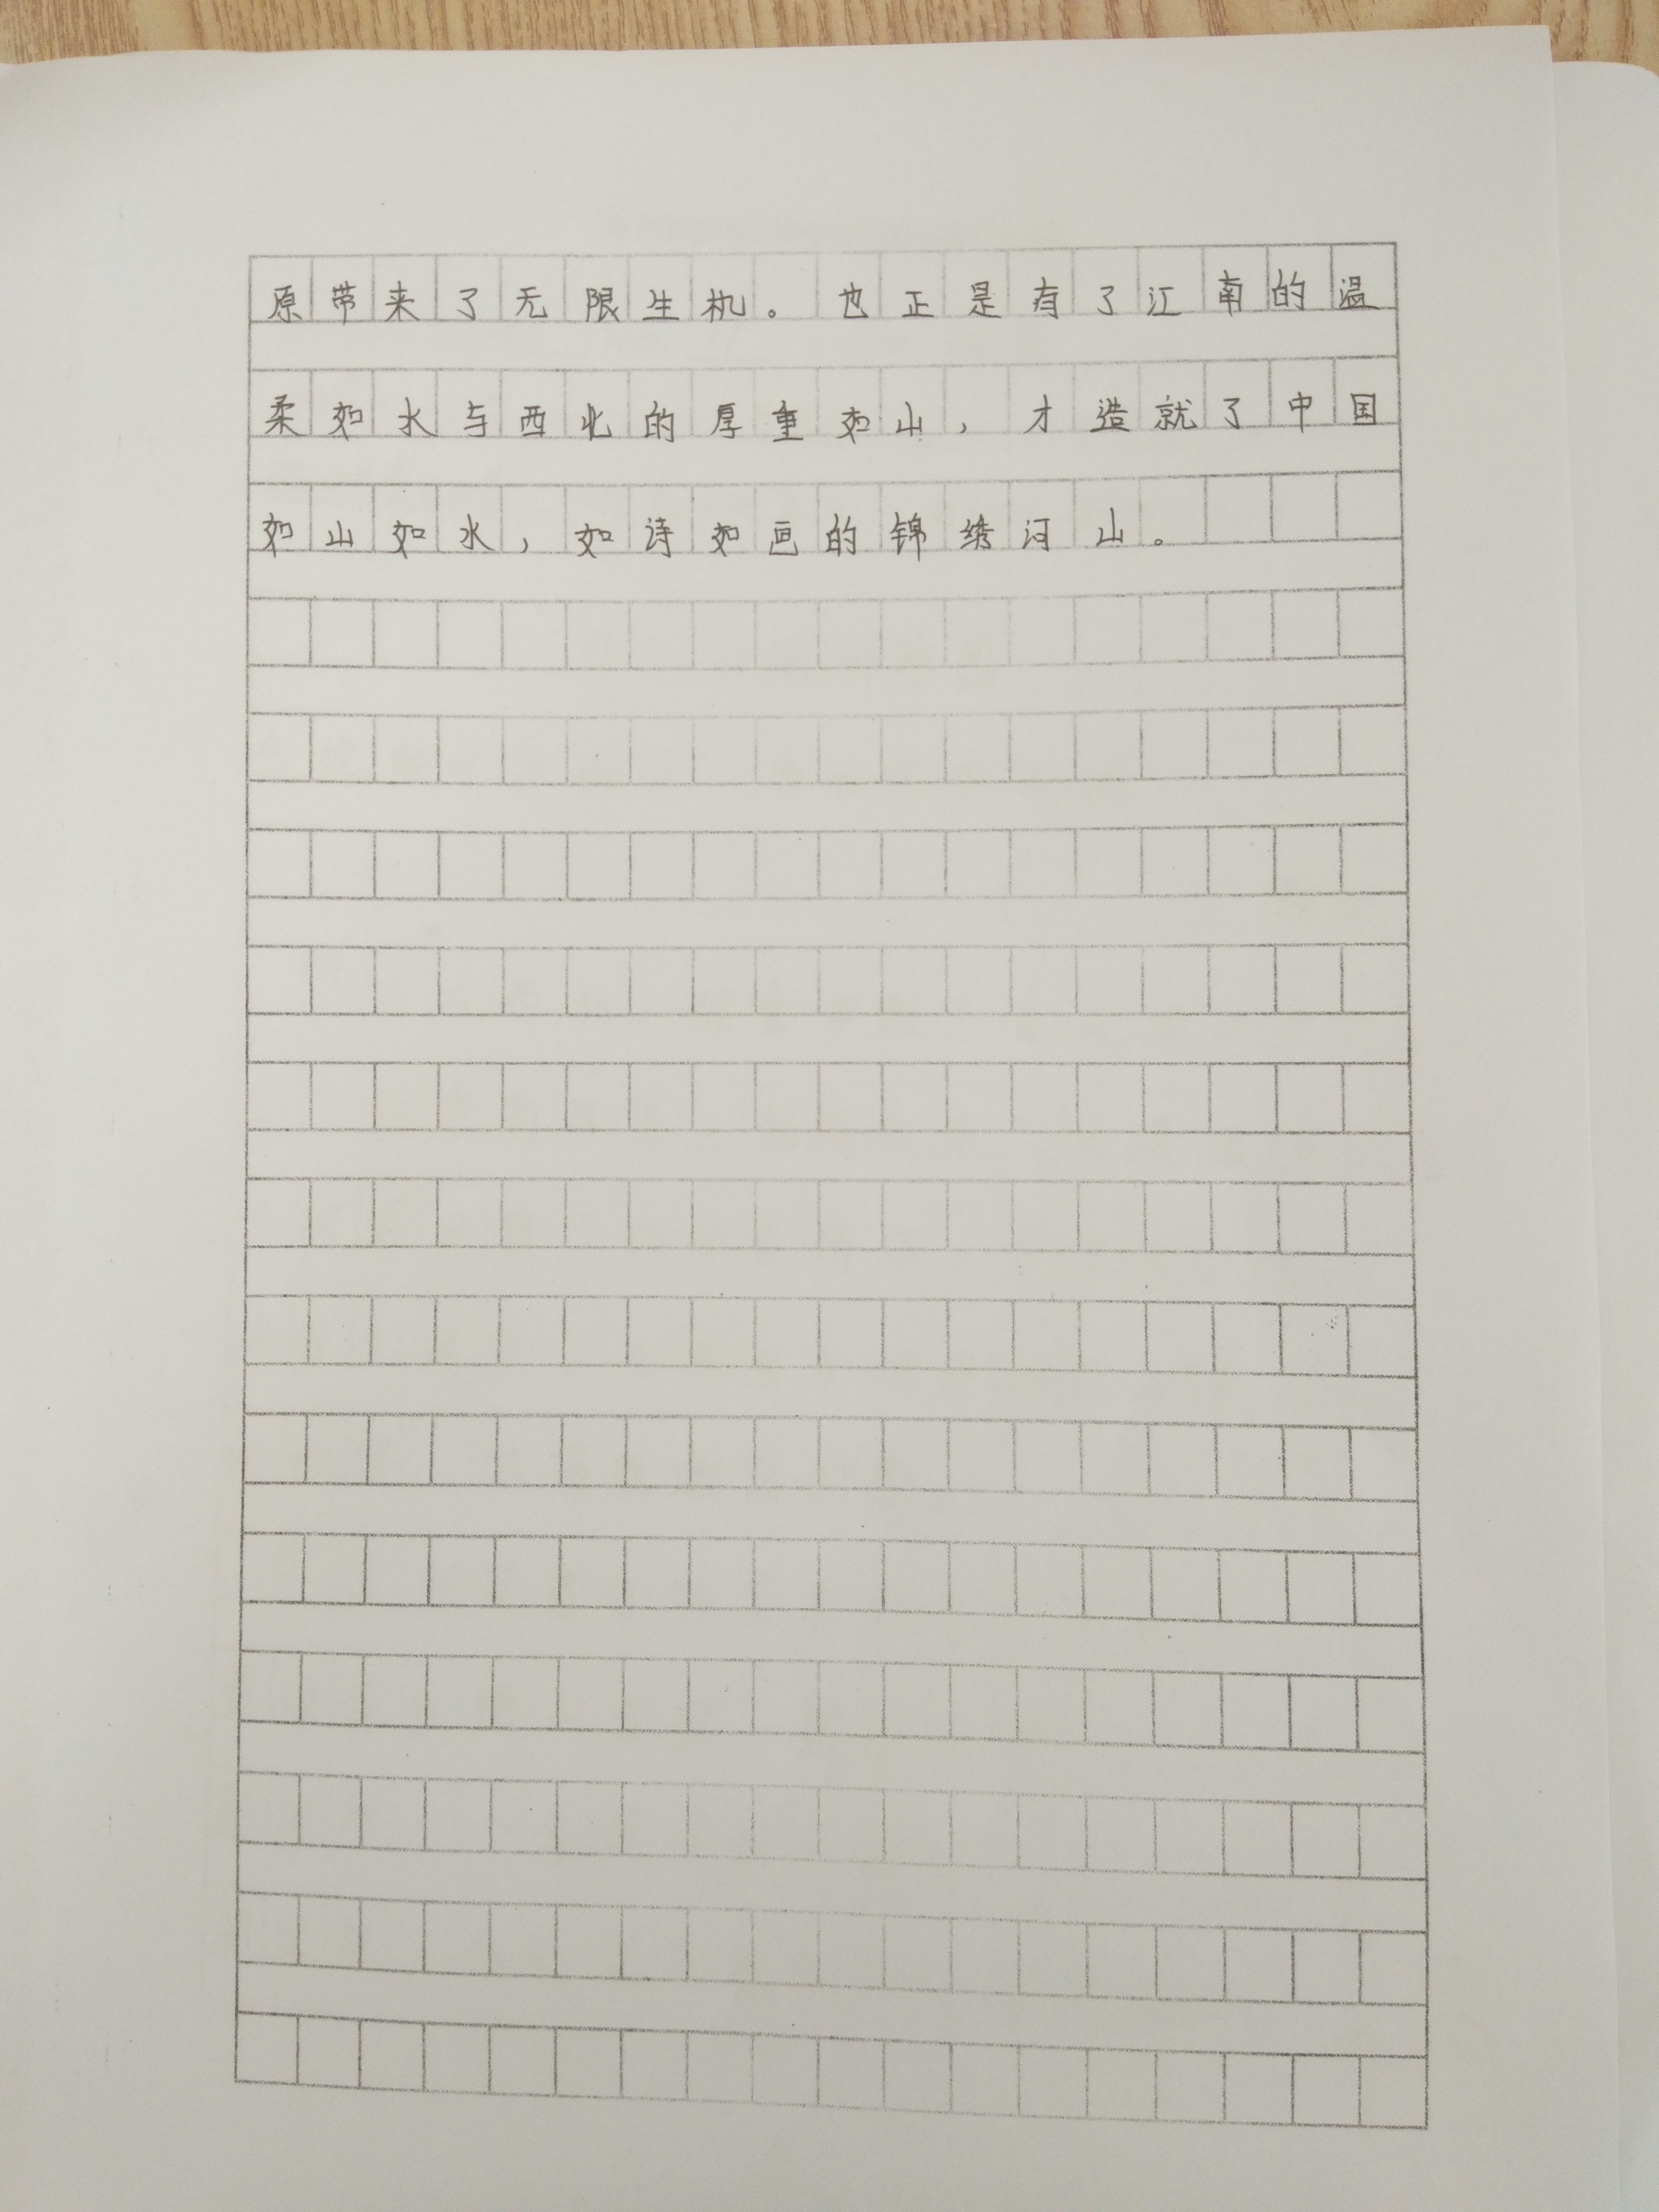 原带来了无限生机。也正是有了江南的温
柔如水与西北的厚重如山，才造就了中国
如山如水，如诗如画的锦绣河山。